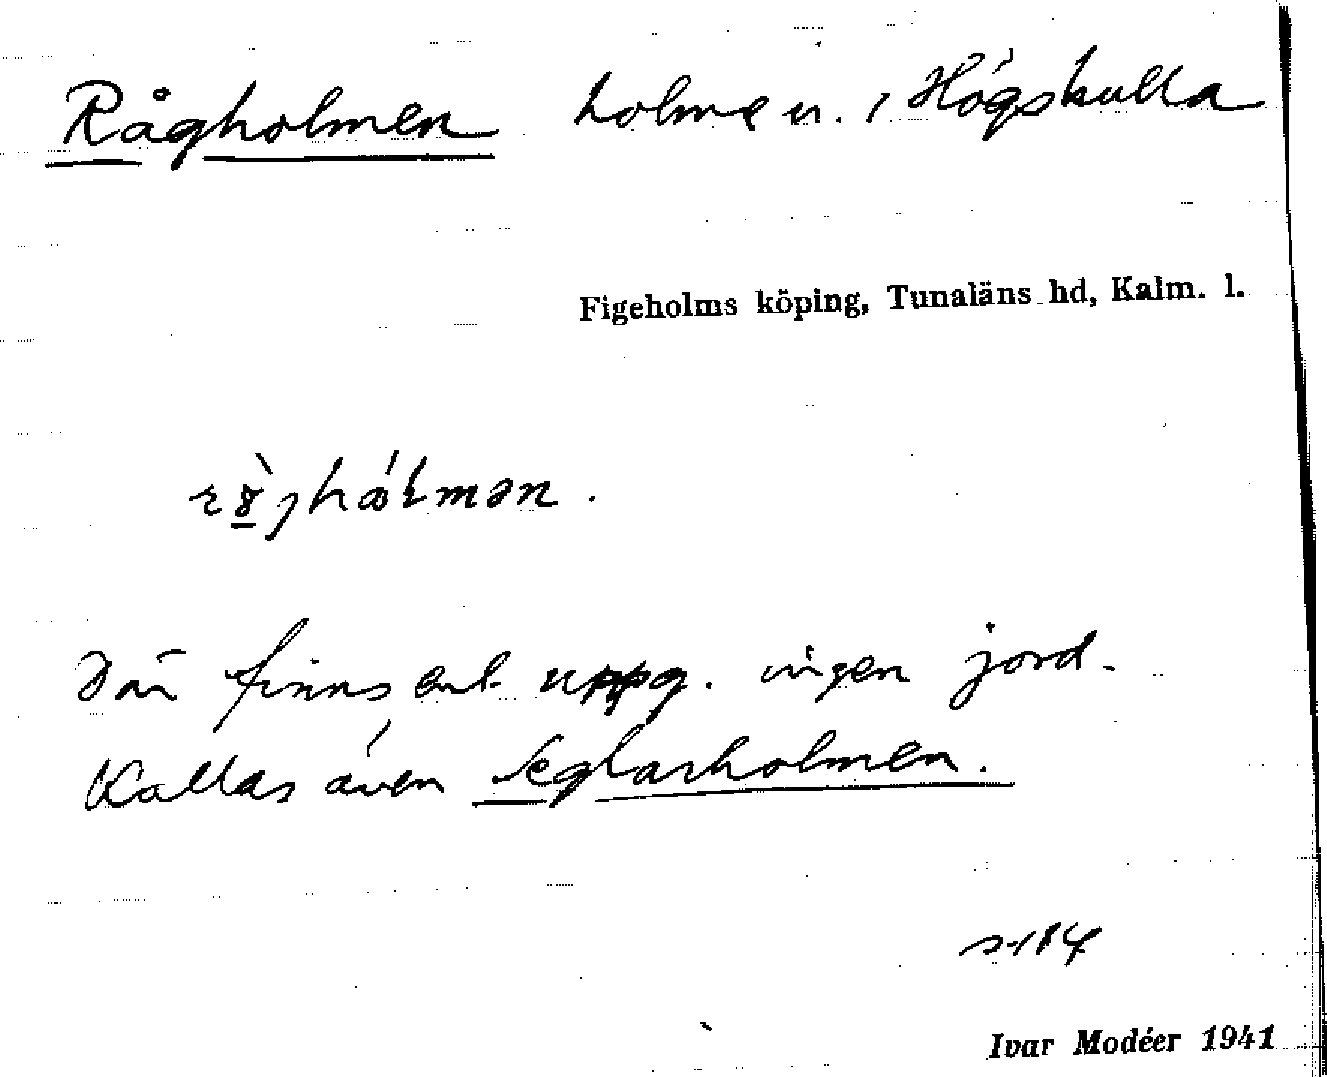 Rågholmen holme n. i Högskulla
Figeholms köping, Tunaläns hd, Kalm. l.
Där finns enl. uppg. ingen jord.
Kallas även Seglarholmen.
Ivar Modéer 1941